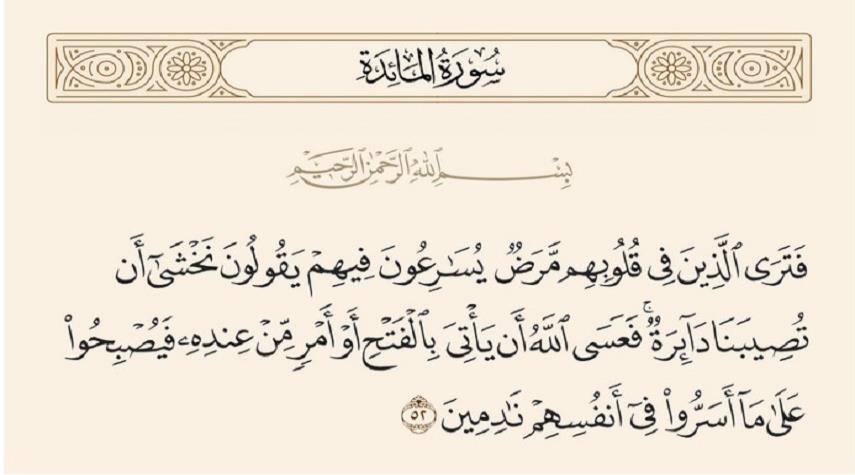 سُورَةُ المَائِدَةِ
بِسْمِ ٱللَّهِ ٱلرَّحْمَٰنِ ٱلرَّحِيمِ
فَتَرَى ٱلَّذِينَ فِى قُلُوبِهِم مَّرَضٌ يُسَٰرِعُونَ فِيهِمْ يَقُولُونَ نَخْشَىٰٓ أَن
تُصِيبَنَا دَآئِرَةٌ ۚ فَعَسَى ٱللَّهُ أَن يَأْتِىَ بِٱلْفَتْحِ أَوْ أَمْرٍ مِّنْ عِندِهِۦ فَيُصْبِحُوا۟
عَلَىٰ مَآ أَسَرُّوا۟ فِىٓ أَنفُسِهِمْ نَٰدِمِينَ ٥٢